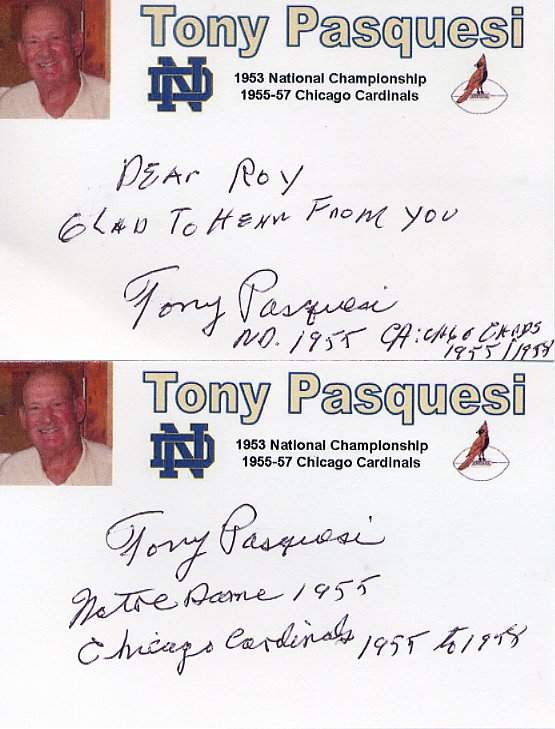 Tony Pasquesi
1953 National Championship
1955-57 Chicago Cardinals
DEAr ROY
GLAD To HEAr From YOU
Tony Pasquesi
ND. 1955 CARDS
1955/1958
Tony Pasquesi
1953 National Championship
1955-57 Chicago Cardinals
Tony Pasquesi
Notre Dame 1955
Chicago Cardinals 1955 to 1958